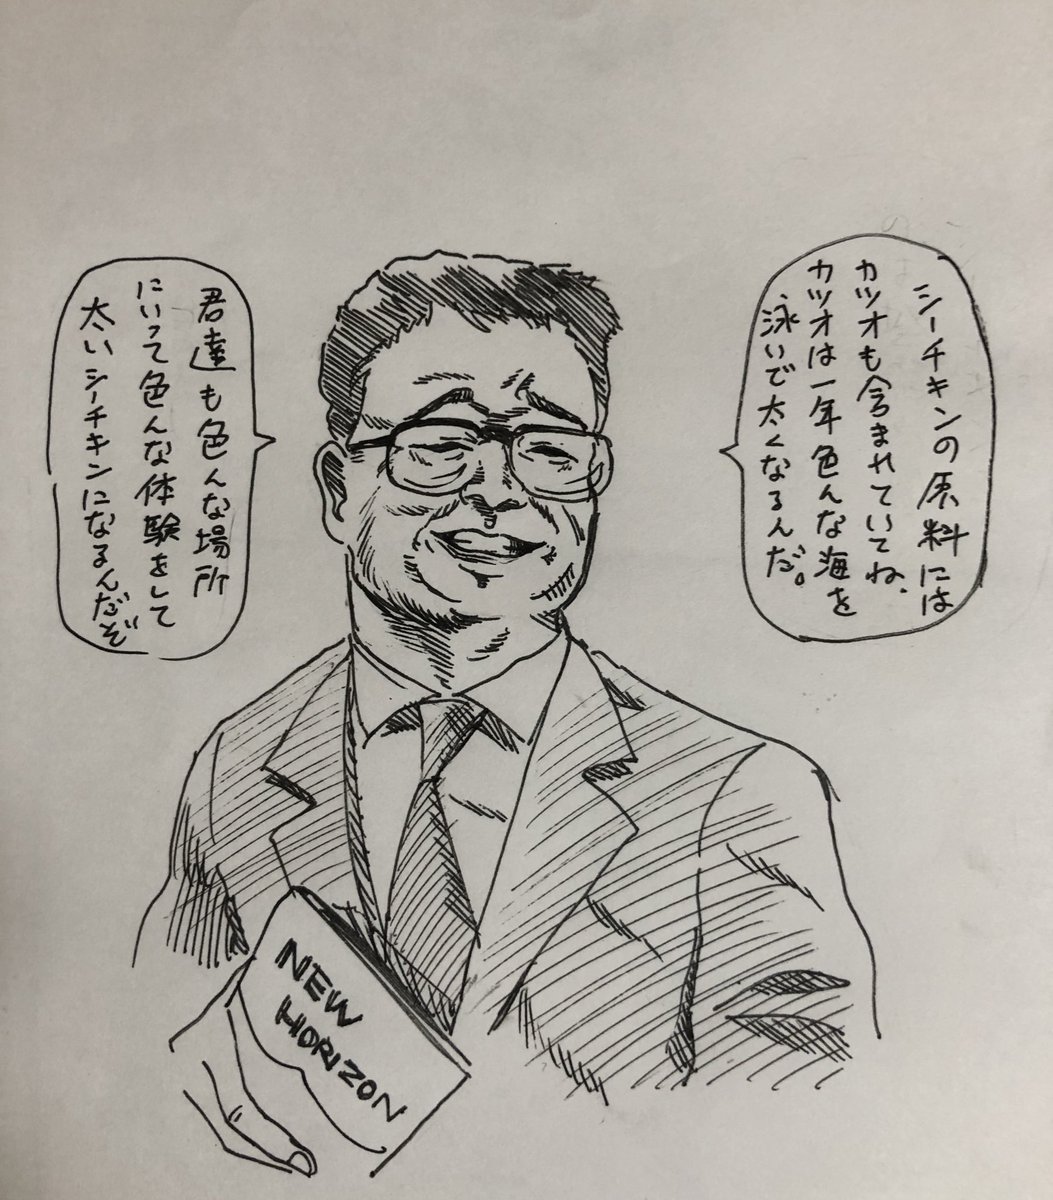 シーチキンの原料には
カツオも含まれていてね、
カツオは一年色んな海を
泳いで太くなるんだ。
君達も色んな場所
にいって色んな体験をして
太いシーチキンになるんだぞ
NEW
HORIZON